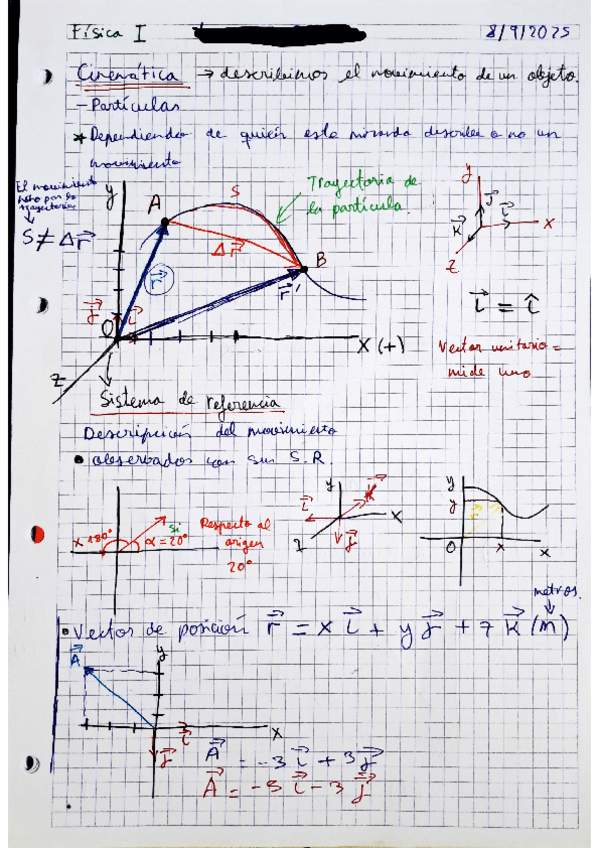 Física I 8/9/2025
Cinemática → describimos el movimiento de un objeto.
- Partículas
* Dependiendo de quién este mirando describe o no un
movimiento
El movimiento
trayectoria
S ≠ Δr⃗
y
A
S
Trayectoria de
la partícula.
Δr⃗
B
r⃗
r⃗'
j⃗
i⃗
O
X (+)
z
y
j⃗
k⃗
i⃗
x
z
i⃗ = î
Vector unitario =
mide uno
Sistema de referencia
Descripción del movimiento
• observados con sus S.R.
x 180°
si
α = 20°
Respecto al
origen
20°
y
k⃗
i⃗
x
z
j⃗
y
y
r⃗
O
x
x
metros.
• Vector de posición r⃗ = x i⃗ + y j⃗ + z k⃗ (m)
A⃗
y
i⃗
x
j⃗
A⃗ = -3 i⃗ + 3 j⃗
A⃗ = -3 i⃗ - 3 j⃗